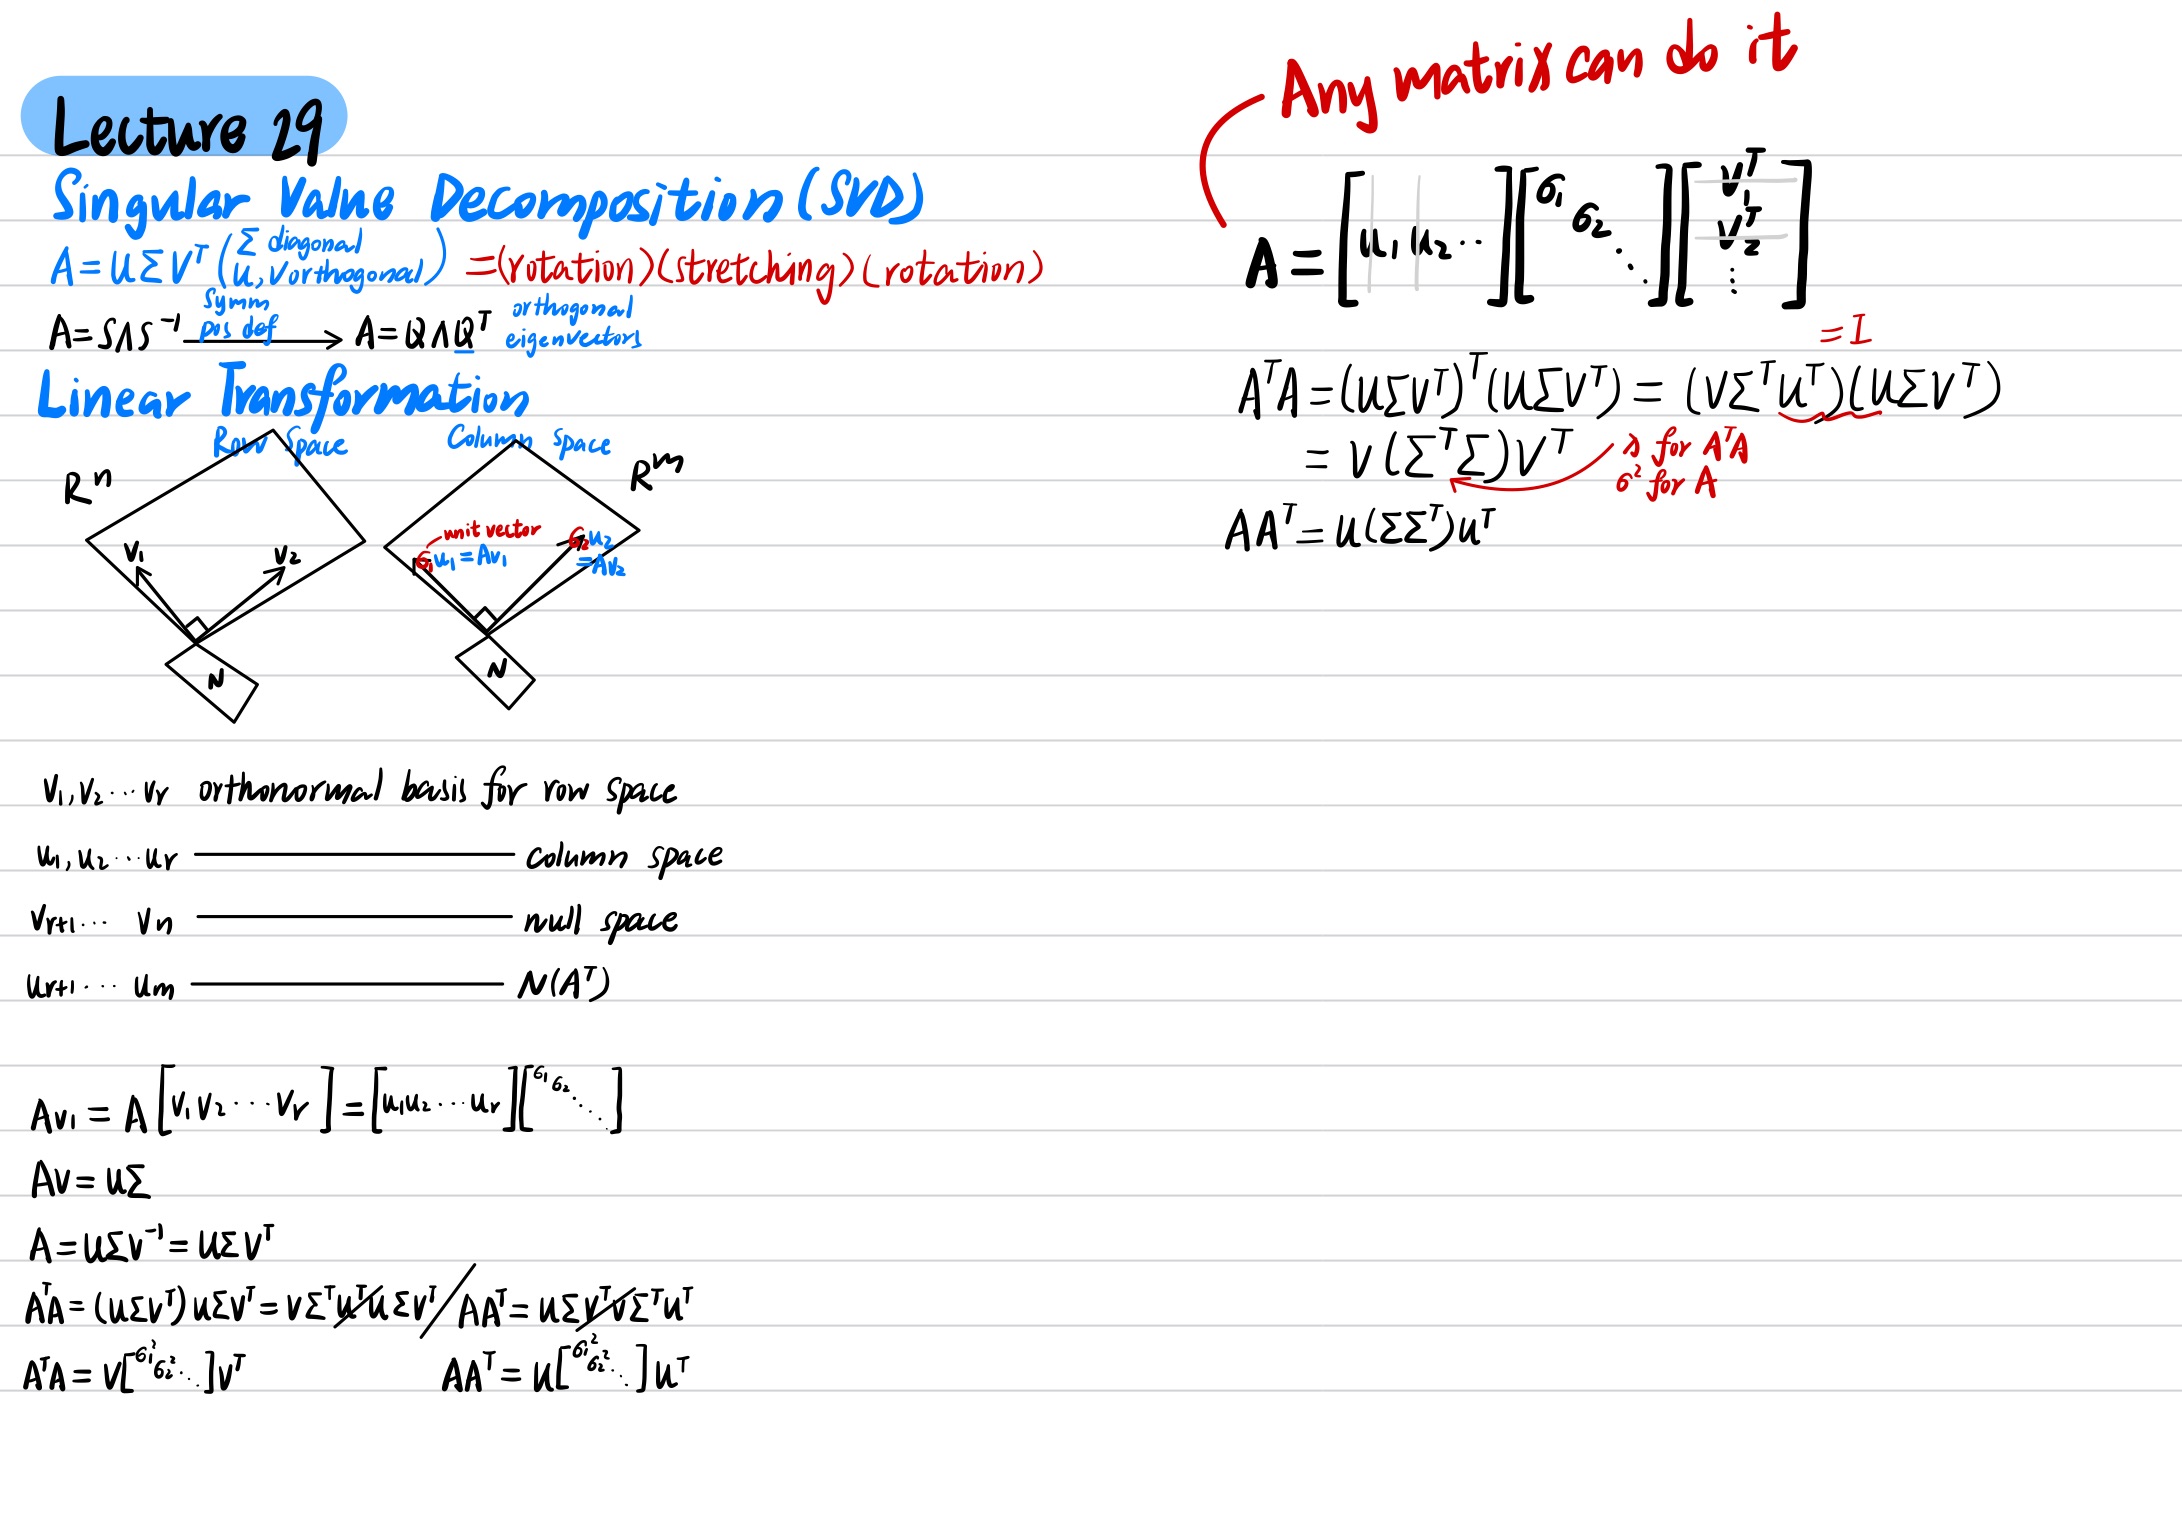 Lecture 29
Singular Value Decomposition (SVD)
A = UΣVᵀ (Σ diagonal
U, V orthogonal) = (rotation)(stretching)(rotation)
A = SΛS⁻¹ symm pos def → A = QΛQᵀ orthogonal eigenvectors
Linear Transformation
Row Space
Column Space
Rⁿ
Rᵐ
v₁
v₂
unit vector
σ₁u₁ = Av₁
σ₂u₂
= Av₂
N
N
v₁, v₂ ... vᵣ orthonormal basis for row space
u₁, u₂ ... uᵣ ——— column space
vᵣ₊₁ ... vₙ ——— null space
uᵣ₊₁ ... uₘ ——— N(Aᵀ)
Av₁ = A [v₁ v₂ ... vᵣ] = [u₁ u₂ ... uᵣ] [σ₁ σ₂ ⋱]
AV = UΣ
A = UΣV⁻¹ = UΣVᵀ
AᵀA = (UΣVᵀ) UΣVᵀ = VΣᵀUᵀUΣVᵀ / AAᵀ = UΣVᵀVΣᵀUᵀ
AᵀA = V[σ₁² σ₂² ⋱]Vᵀ AAᵀ = U[σ₁² σ₂² ⋱]Uᵀ
Any matrix can do it
A = [u₁ u₂ ..] [σ₁ σ₂ ⋱] [v₁ᵀ v₂ᵀ ⋮]
= I
AᵀA = (UΣVᵀ)ᵀ(UΣVᵀ) = (VΣᵀUᵀ)(UΣVᵀ)
= V(ΣᵀΣ)Vᵀ
λ for AᵀA
σ² for A
AAᵀ = U(ΣΣᵀ)Uᵀ